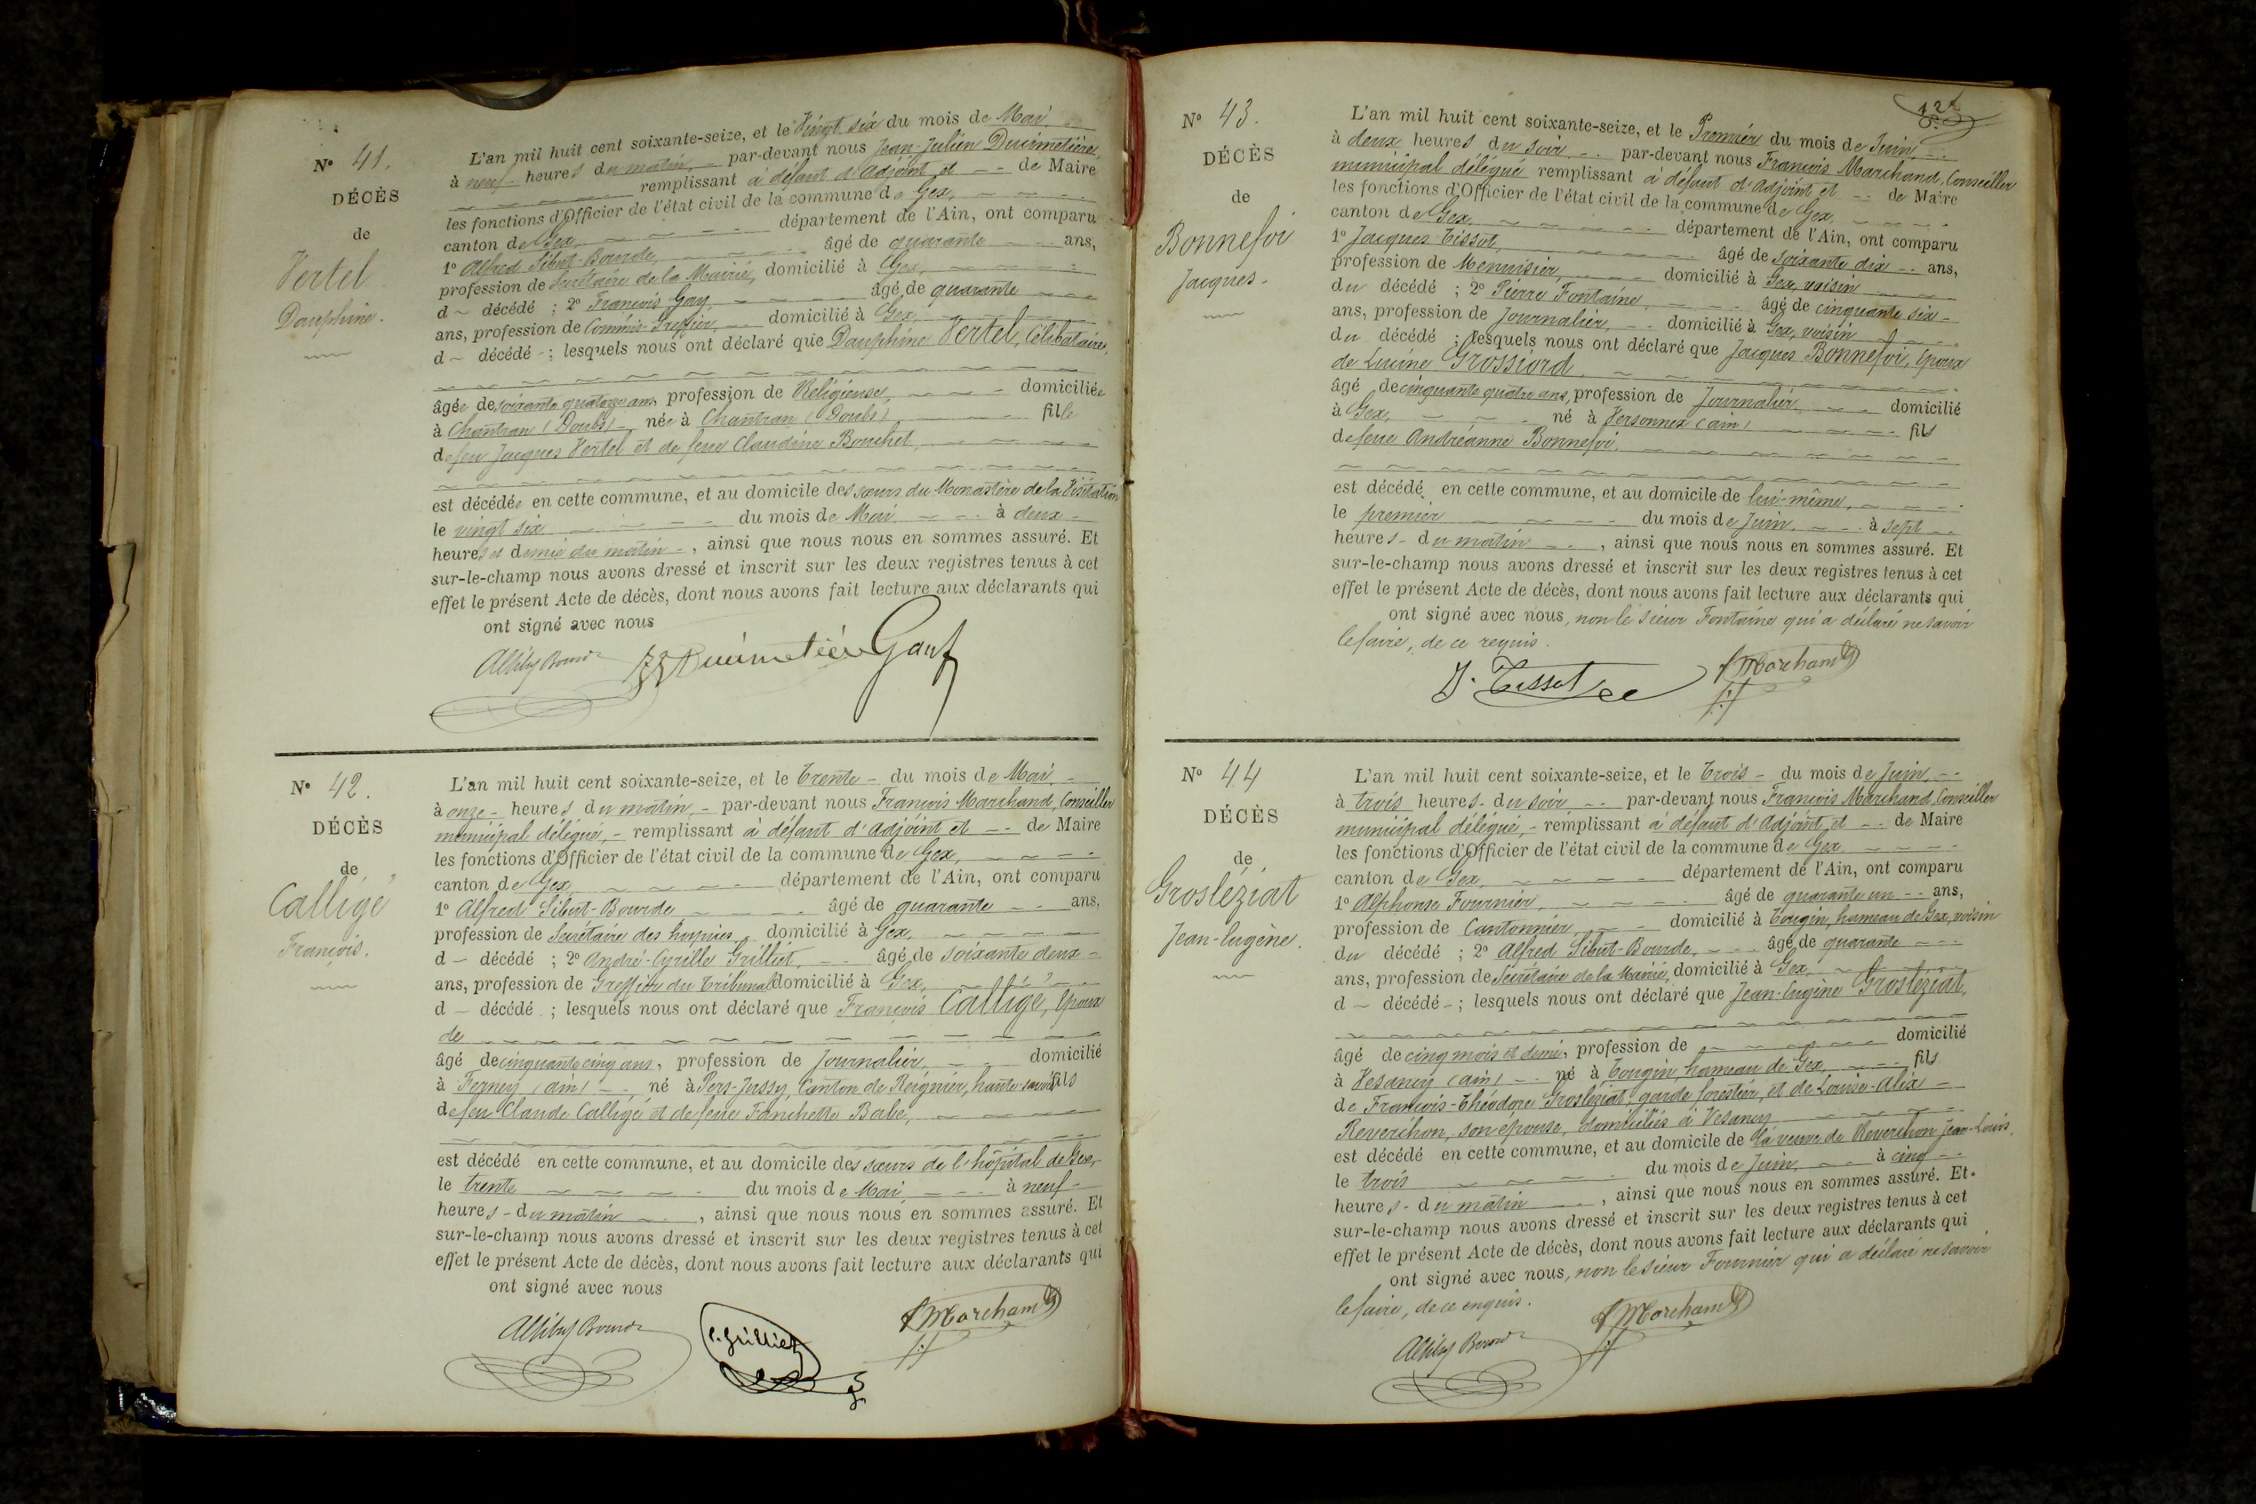 N° 41.
DÉCÈS
de
Vertel
Dauphine.
L'an mil huit cent soixante-seize, et le Vingt six du mois de Mai
à neuf heures du matin, par-devant nous Jean-Julien Duimetière,
remplissant à défaut d'adjoint et de Maire
les fonctions d'Officier de l'état civil de la commune de Gex,
canton de Gex, département de l'Ain, ont comparu
1° Alfred Sibut-Bourde, âgé de quarante ans,
profession de Secrétaire de la Mairie, domicilié à Gex,
d décédé ; 2° François Gay âgé de quarante
ans, profession de Commis-Greffier, domicilié à Gex,
d décédé ; lesquels nous ont déclaré que Dauphine Vertel, Célibataire,
âgée de soixante quatorze ans, profession de Religieuse, domiciliée
à Chantran (Doubs), née à Chantran (Doubs) fille
de feu Jacques Vertel et de feue Claudine Bouchet,
est décédée en cette commune, et au domicile des sœurs du Monastère de la Visitation
le vingt six du mois de Mai à deux
heures et demie du matin, ainsi que nous nous en sommes assuré. Et
sur-le-champ nous avons dressé et inscrit sur les deux registres tenus à cet
effet le présent Acte de décès, dont nous avons fait lecture aux déclarants qui
ont signé avec nous
ASibut Bourde Duimetière Gay
N° 42.
DÉCÈS
de
Calligé
François.
L'an mil huit cent soixante-seize, et le Trente du mois de Mai
à onze heures du matin, par-devant nous François Marchand, Conseiller
municipal délégué, remplissant à défaut d'Adjoint et de Maire
les fonctions d'Officier de l'état civil de la commune de Gex,
canton de Gex, département de l'Ain, ont comparu
1° Alfred Sibut-Bourde âgé de quarante ans,
profession de Secrétaire des hospices, domicilié à Gex,
d décédé ; 2° André-Cyrille Grilliet, âgé de soixante deux
ans, profession de Greffier du Tribunal domicilié à Gex,
d décédé ; lesquels nous ont déclaré que François Calligé, époux
de
âgé de cinquante cinq ans, profession de Journalier, domicilié
à Ferney (ain), né à Pers-Jussy, Canton de Reignier, haute-savoie fils
de feu Claude Calligé et de feue Fanchette Babe,
est décédé en cette commune, et au domicile des sœurs de l'hôpital de Gex,
le trente du mois de Mai, à neuf
heures du matin, ainsi que nous nous en sommes assuré. Et
sur-le-champ nous avons dressé et inscrit sur les deux registres tenus à cet
effet le présent Acte de décès, dont nous avons fait lecture aux déclarants qui
ont signé avec nous
ASibut Bourde C. Grilliet F Marchand
N° 43.
DÉCÈS
de
Bonnefoi
Jacques.
L'an mil huit cent soixante-seize, et le Premier du mois de Juin,
à deux heures du soir, par-devant nous François Marchand, Conseiller
municipal délégué remplissant à défaut d'Adjoint et de Maire
les fonctions d'Officier de l'état civil de la commune de Gex
canton de Gex, département de l'Ain, ont comparu
1° Jacques Tissot, âgé de soixante dix ans,
profession de Menuisier, domicilié à Gex, voisin
du décédé ; 2° Pierre Fontaine, âgé de cinquante six
ans, profession de Journalier, domicilié à Gex, voisin
du décédé ; lesquels nous ont déclaré que Jacques Bonnefoi, époux
de Lucine Grossiord,
âgé de cinquante quatre ans, profession de Journalier, domicilié
à Gex, né à Versonnex (ain) fils
de feue Andréanne Bonnefoi.
est décédé en cette commune, et au domicile de lui-même,
le premier du mois de Juin, à sept
heures du matin, ainsi que nous nous en sommes assuré. Et
sur-le-champ nous avons dressé et inscrit sur les deux registres tenus à cet
effet le présent Acte de décès, dont nous avons fait lecture aux déclarants qui
ont signé avec nous, non le sieur Fontaine qui a déclaré ne savoir
le faire, de ce requis.
J. Tissot F Marchand
N° 44
DÉCÈS
de
Grosléziat
Jean-Eugène.
L'an mil huit cent soixante-seize, et le Trois du mois de Juin
à trois heures du soir par-devant nous François Marchand, Conseiller
municipal délégué, remplissant à défaut d'Adjoint et de Maire
les fonctions d'Officier de l'état civil de la commune de Gex
canton de Gex, département de l'Ain, ont comparu
1° Alphonse Fournier, âgé de quarante un ans,
profession de Cantonnier, domicilié à Tougin, hameau de Gex, voisin
du décédé ; 2° Alfred Sibut-Bourde, âgé de quarante
ans, profession de Secrétaire de la Mairie, domicilié à Gex,
d décédé ; lesquels nous ont déclaré que Jean-Eugène Grosléziat,
âgé de cinq mois et demi, profession de domicilié
à Vesancy (ain) né à Tougin, hameau de Gex, fils
de François-Théodore Grosléziat, garde forestier, et de Louise-Alix
Reverchon, son épouse, domiciliés à Vesancy
est décédé en cette commune, et au domicile de la veuve de Reverchon Jean-Louis,
le trois du mois de Juin, à cinq
heures du matin, ainsi que nous nous en sommes assuré. Et
sur-le-champ nous avons dressé et inscrit sur les deux registres tenus à cet
effet le présent Acte de décès, dont nous avons fait lecture aux déclarants qui
ont signé avec nous, non le sieur Fournier qui a déclaré ne savoir
le faire, de ce enquis.
ASibut Bourde F Marchand